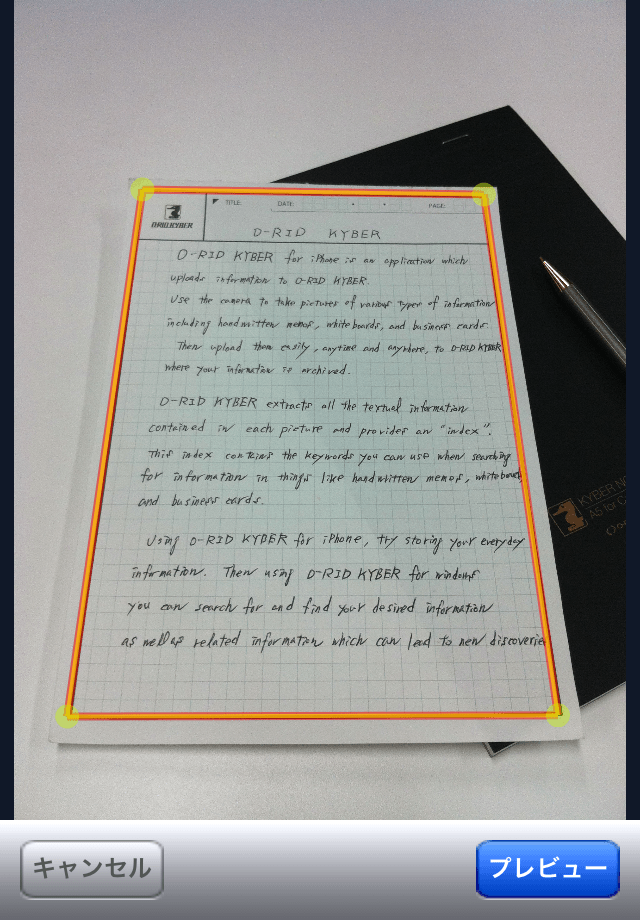 TITLE: DATE: PAGE:
O-RID KYBER
O-RID KYBER for iPhone is an application which
uploads information to O-RID KYBER.
Use the camera to take pictures of various types of information
including handwritten memos, whiteboards, and business cards.
Then upload them easily, anytime and anywhere, to O-RID KYBER
where your information is archived.
O-RID KYBER extracts all the textual information
contained in each picture and provides an "index".
This index contains the keywords you can use when searching
for information in things like handwritten memos, whiteboards
and business cards.
Using O-RID KYBER for iPhone, try storing your everyday
information. Then using O-RID KYBER for windows
you can search for and find your desired information
as well as related information which can lead to new discoveries
キャンセル
プレビュー